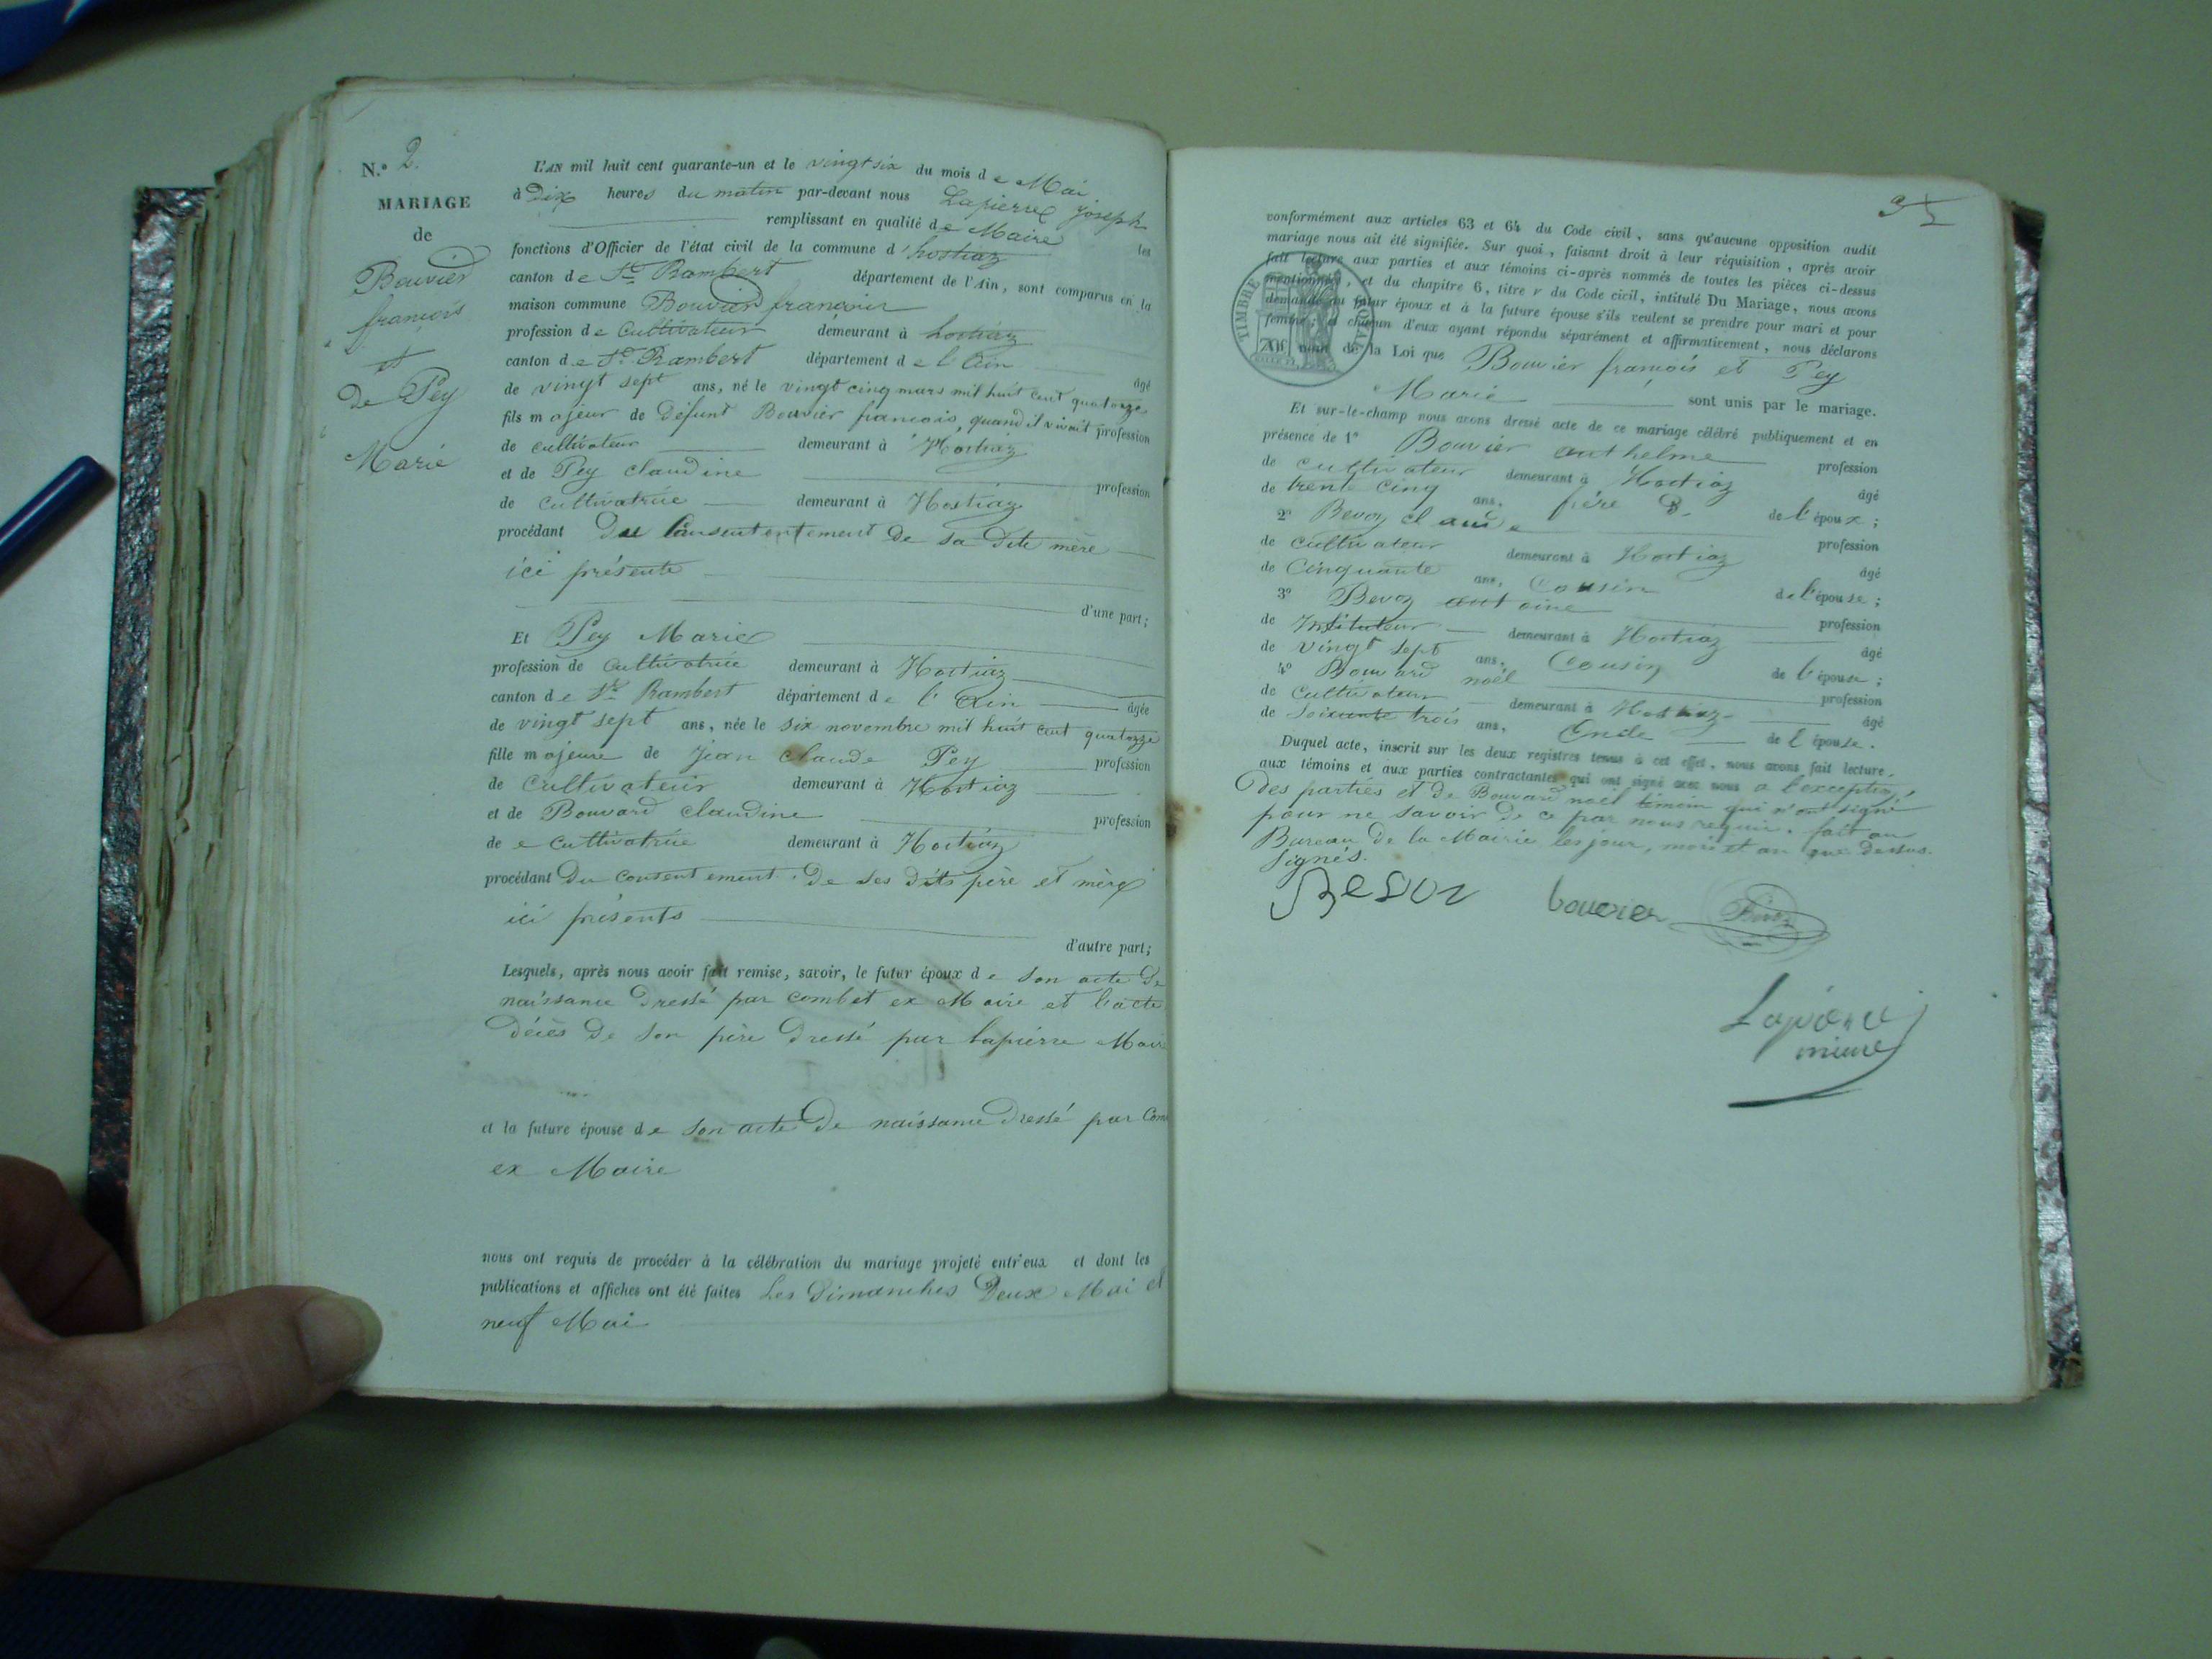 N.º 2.
MARIAGE
de
Bouvier
françois
et
De Pey
Marie
L'AN mil huit cent quarante-un et le vingt six du mois de Mai
à Dix heures du matin par-devant nous Lapierre joseph
remplissant en qualité de Maire les
fonctions d'Officier de l'état civil de la commune d'hostiaz
canton de St Rambert département de l'Ain, sont comparus en la
maison commune Bouvier françois
profession de Cultivateur demeurant à hostiaz
canton de St Rambert département de l'Ain âgé
de vingt sept ans, né le vingt cinq mars mil huit cent quatorze
fils majeur de Défunt Bouvier francois, quand il vivait profession
de cultivateur demeurant à Hostiaz
et de Pey claudine profession
de cultivatrice demeurant à Hostiaz
procédant du de sa dite mère
ici présente
d'une part;
Et Pey Marie
profession de cultivatrice demeurant à Hostiaz
canton de St Rambert département de l'Ain âgée
de vingt sept ans, née le six novembre mil huit cent quatorze
fille majeure de jean claude Pey profession
de Cultivateur demeurant à Hostiaz
et de Bouvard claudine profession
de e cultivatrice demeurant à Hostiaz
procédant Du consentement De ses dits père et mère
ici présents
d'autre part;
Lesquels, après nous avoir fait remise, savoir, le futur époux de son acte De
naissance Dressé par combet ex Maire et l'acte
décès De son père Dressé par lapierre Maire
et la future épouse de son acte De naissance Dressé par Com
ex Maire
nous ont requis de procéder à la célébration du mariage projeté entr'eux et dont les
publications et affiches ont été faites Les Dimanches Deux Mai et
neuf Mai
conformément aux articles 63 et 64 du Code civil, sans qu'aucune opposition audit
mariage nous ait été signifiée. Sur quoi, faisant droit à leur réquisition, après avoir
fait lecture aux parties et aux témoins ci-après nommés de toutes les pièces ci-dessus
mentionnées, et du chapitre 6, titre v du Code civil, intitulé Du Mariage, nous avons
demandé au futur époux et à la future épouse s'ils veulent se prendre pour mari et pour
femme; et chacun d'eux ayant répondu séparément et affirmativement, nous déclarons
TIMBRE ROYAL
au nom de la Loi que Bouvier françois et Pey
Marie sont unis par le mariage.
Et sur-le-champ nous avons dressé acte de ce mariage célébré publiquement et en
présence de 1º Bouvier anthelme profession
de cultivateur demeurant à Hostiaz âgé
de trente cinq ans, frère de l'époux;
2º Bevoz claude profession
de cultivateur demeurant à Hostiaz âgé
de Cinquante ans, Cousin de l'épouse;
3º Bevoz antoine profession
de Instituteur demeurant à Hostiaz âgé
de vingt sept ans, Cousin de l'épouse;
4º Bouvard noël profession
de Cultivateur demeurant à Hostiaz âgé
de soixante trois ans, Oncle de l'épouse.
Duquel acte, inscrit sur les deux registres tenus à cet effet, nous avons fait lecture,
aux témoins et aux parties contractantes qui ont signé avec nous a l'exception
des parties et de Bouvard noël témoin qui n'ont signé
pour ne savoir de ce par nous requis. fait au
Bureau de la Mairie les jour, mois et an que dessus.
Signés.
Besoz bouvier Bevoz
Lapierre
maire